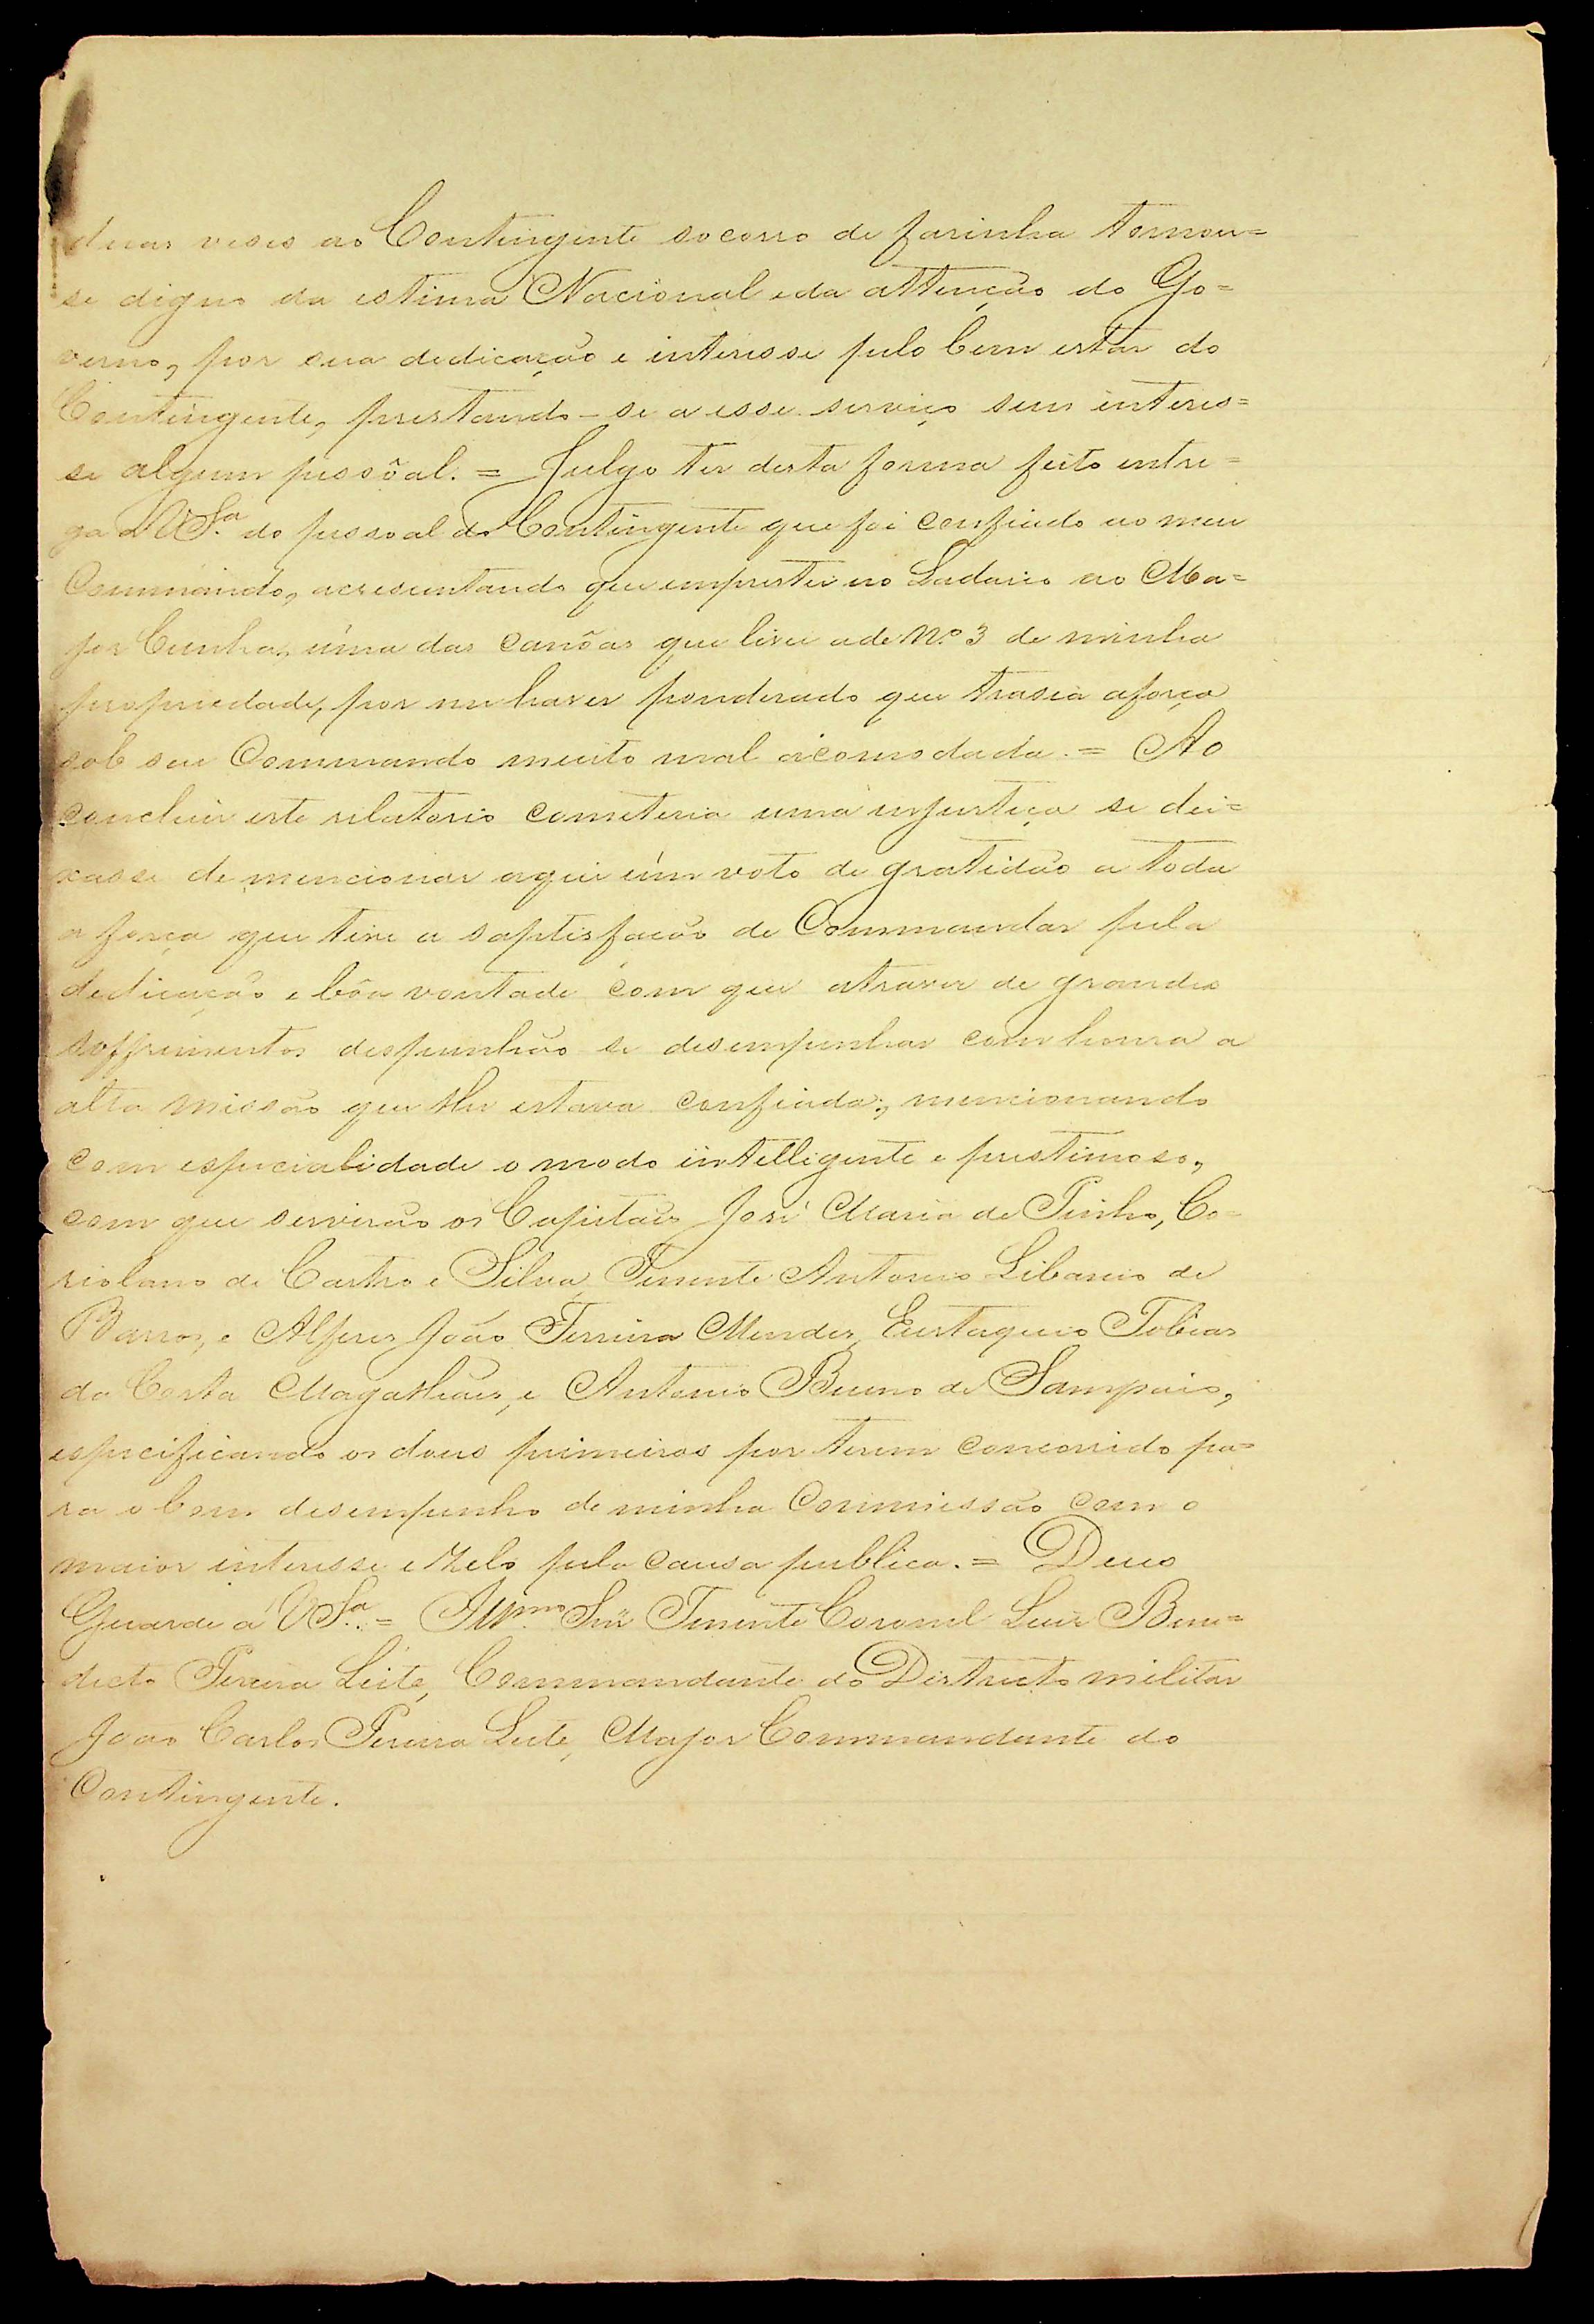 duas veses ao Contingente socorro de farinha tornou=
se digno da estima Nacional e da attenção do Go=
verno, por sua dedicação e interesse pelo bem estar do
Contingente, prestando-se a esse serviço sem interes=
se algum pessoal. = Julgo ter desta forma feito entre=
ga a VSª. do pessoal do Contingente que foi confiado ao meu
Commando, acrescentando que emprestei no Ladario ao Ma=
jor Cunha, uma das canôas que tive a de Nº 3 de minha
propriedade, por me haver ponderado que trasia a força
sob seu Commando muito mal acomodada. = Ao
concluir este relatorio cometeria uma injustiça se dei=
xasse de mencionar aqui úm voto de gratidão a toda
a força que tive a saptisfação de Commandar pela
dedicação e bôa vontade com que atravez de grandes
soffrimentos despunhão se desempenhar com honra a
alta missão que lhe estava confiada; mencionando
com especialidade o modo intelligente e prestimoso,
com que servirão os Capitães José Maria de Pinho, Co=
riolano de Castro e Silva, Tenente Antonio Libanio de
Barros, e Alferes João Ferreira Mendes, Eustaquio Tobias
da Costa Magalhães, e Antonio Bueno de Sampaio,
especificando os dous primeiros por terem concorrido pa=
ra o bom desempenho de minha Commissão com o
maior interesse e zelo pela causa publica. = Deus
Guarde a VSª. = Illmo. Snr Tenente Coronel Luiz Bene=
dicto Pereira Leite, Commandante do Districto militar
João Carlos Pereira Leite, Major Commandante do
Contingente.